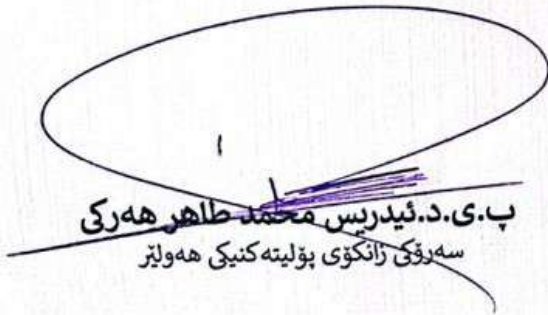 پ.ی.د.ئیدریس محمد طاهر هەرکی
سەرۆکی زانکۆی پۆلیتەکنیکی هەولێر